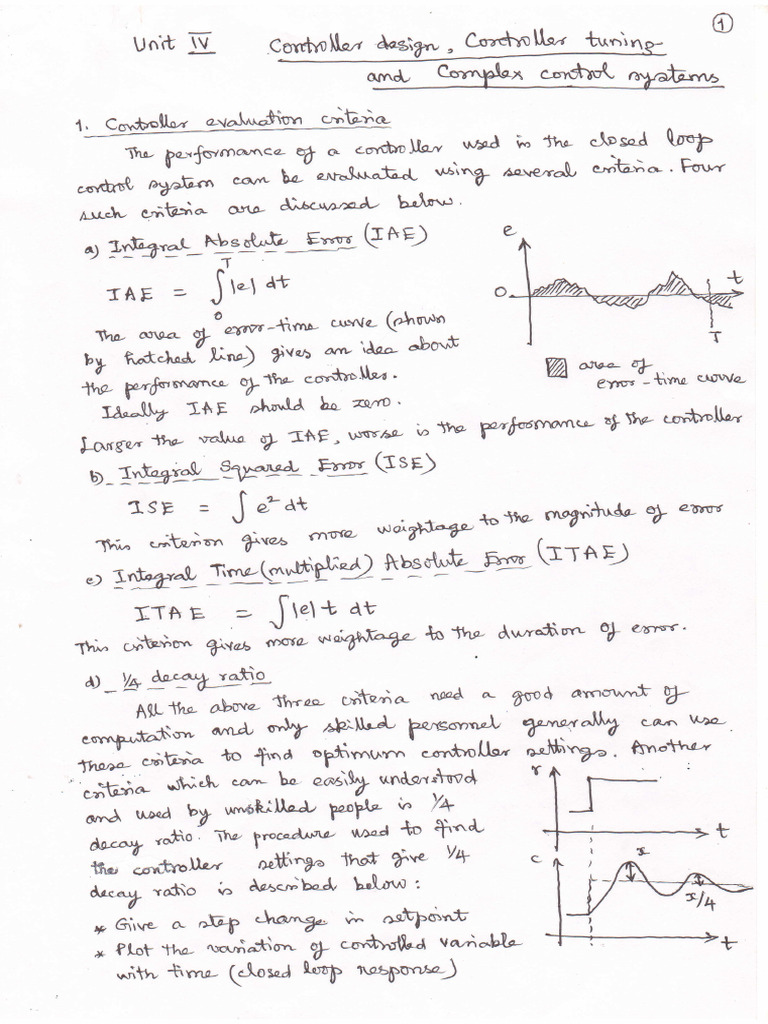 1
Unit IV Controller design, Controller tuning
and Complex control systems
1. Controller evaluation criteria
The performance of a controller used in the closed loop
control system can be evaluated using several criteria. Four
such criteria are discussed below.
a) Integral Absolute Error (IAE)
IAE = ∫₀ᵀ |e| dt
The area of error-time curve (shown
by hatched line) gives an idea about
the performance of the controller.
Ideally IAE should be zero.
e
0
t
T
area of
error-time curve
Larger the value of IAE, worse is the performance of the controller
b) Integral Squared Error (ISE)
ISE = ∫ e² dt
This criterion gives more weightage to the magnitude of error
c) Integral Time (multiplied) Absolute Error (ITAE)
ITAE = ∫ |e| t dt
This criterion gives more weightage to the duration of error.
d) 1/4 decay ratio
All the above three criteria need a good amount of
computation and only skilled personnel generally can use
these criteria to find optimum controller settings. Another
criteria which can be easily understood
and used by unskilled people is 1/4
decay ratio. The procedure used to find
the controller settings that give 1/4
decay ratio is described below:
* Give a step change in setpoint
* Plot the variation of controlled variable
with time (closed loop response)
r
t
c
x
x/4
t